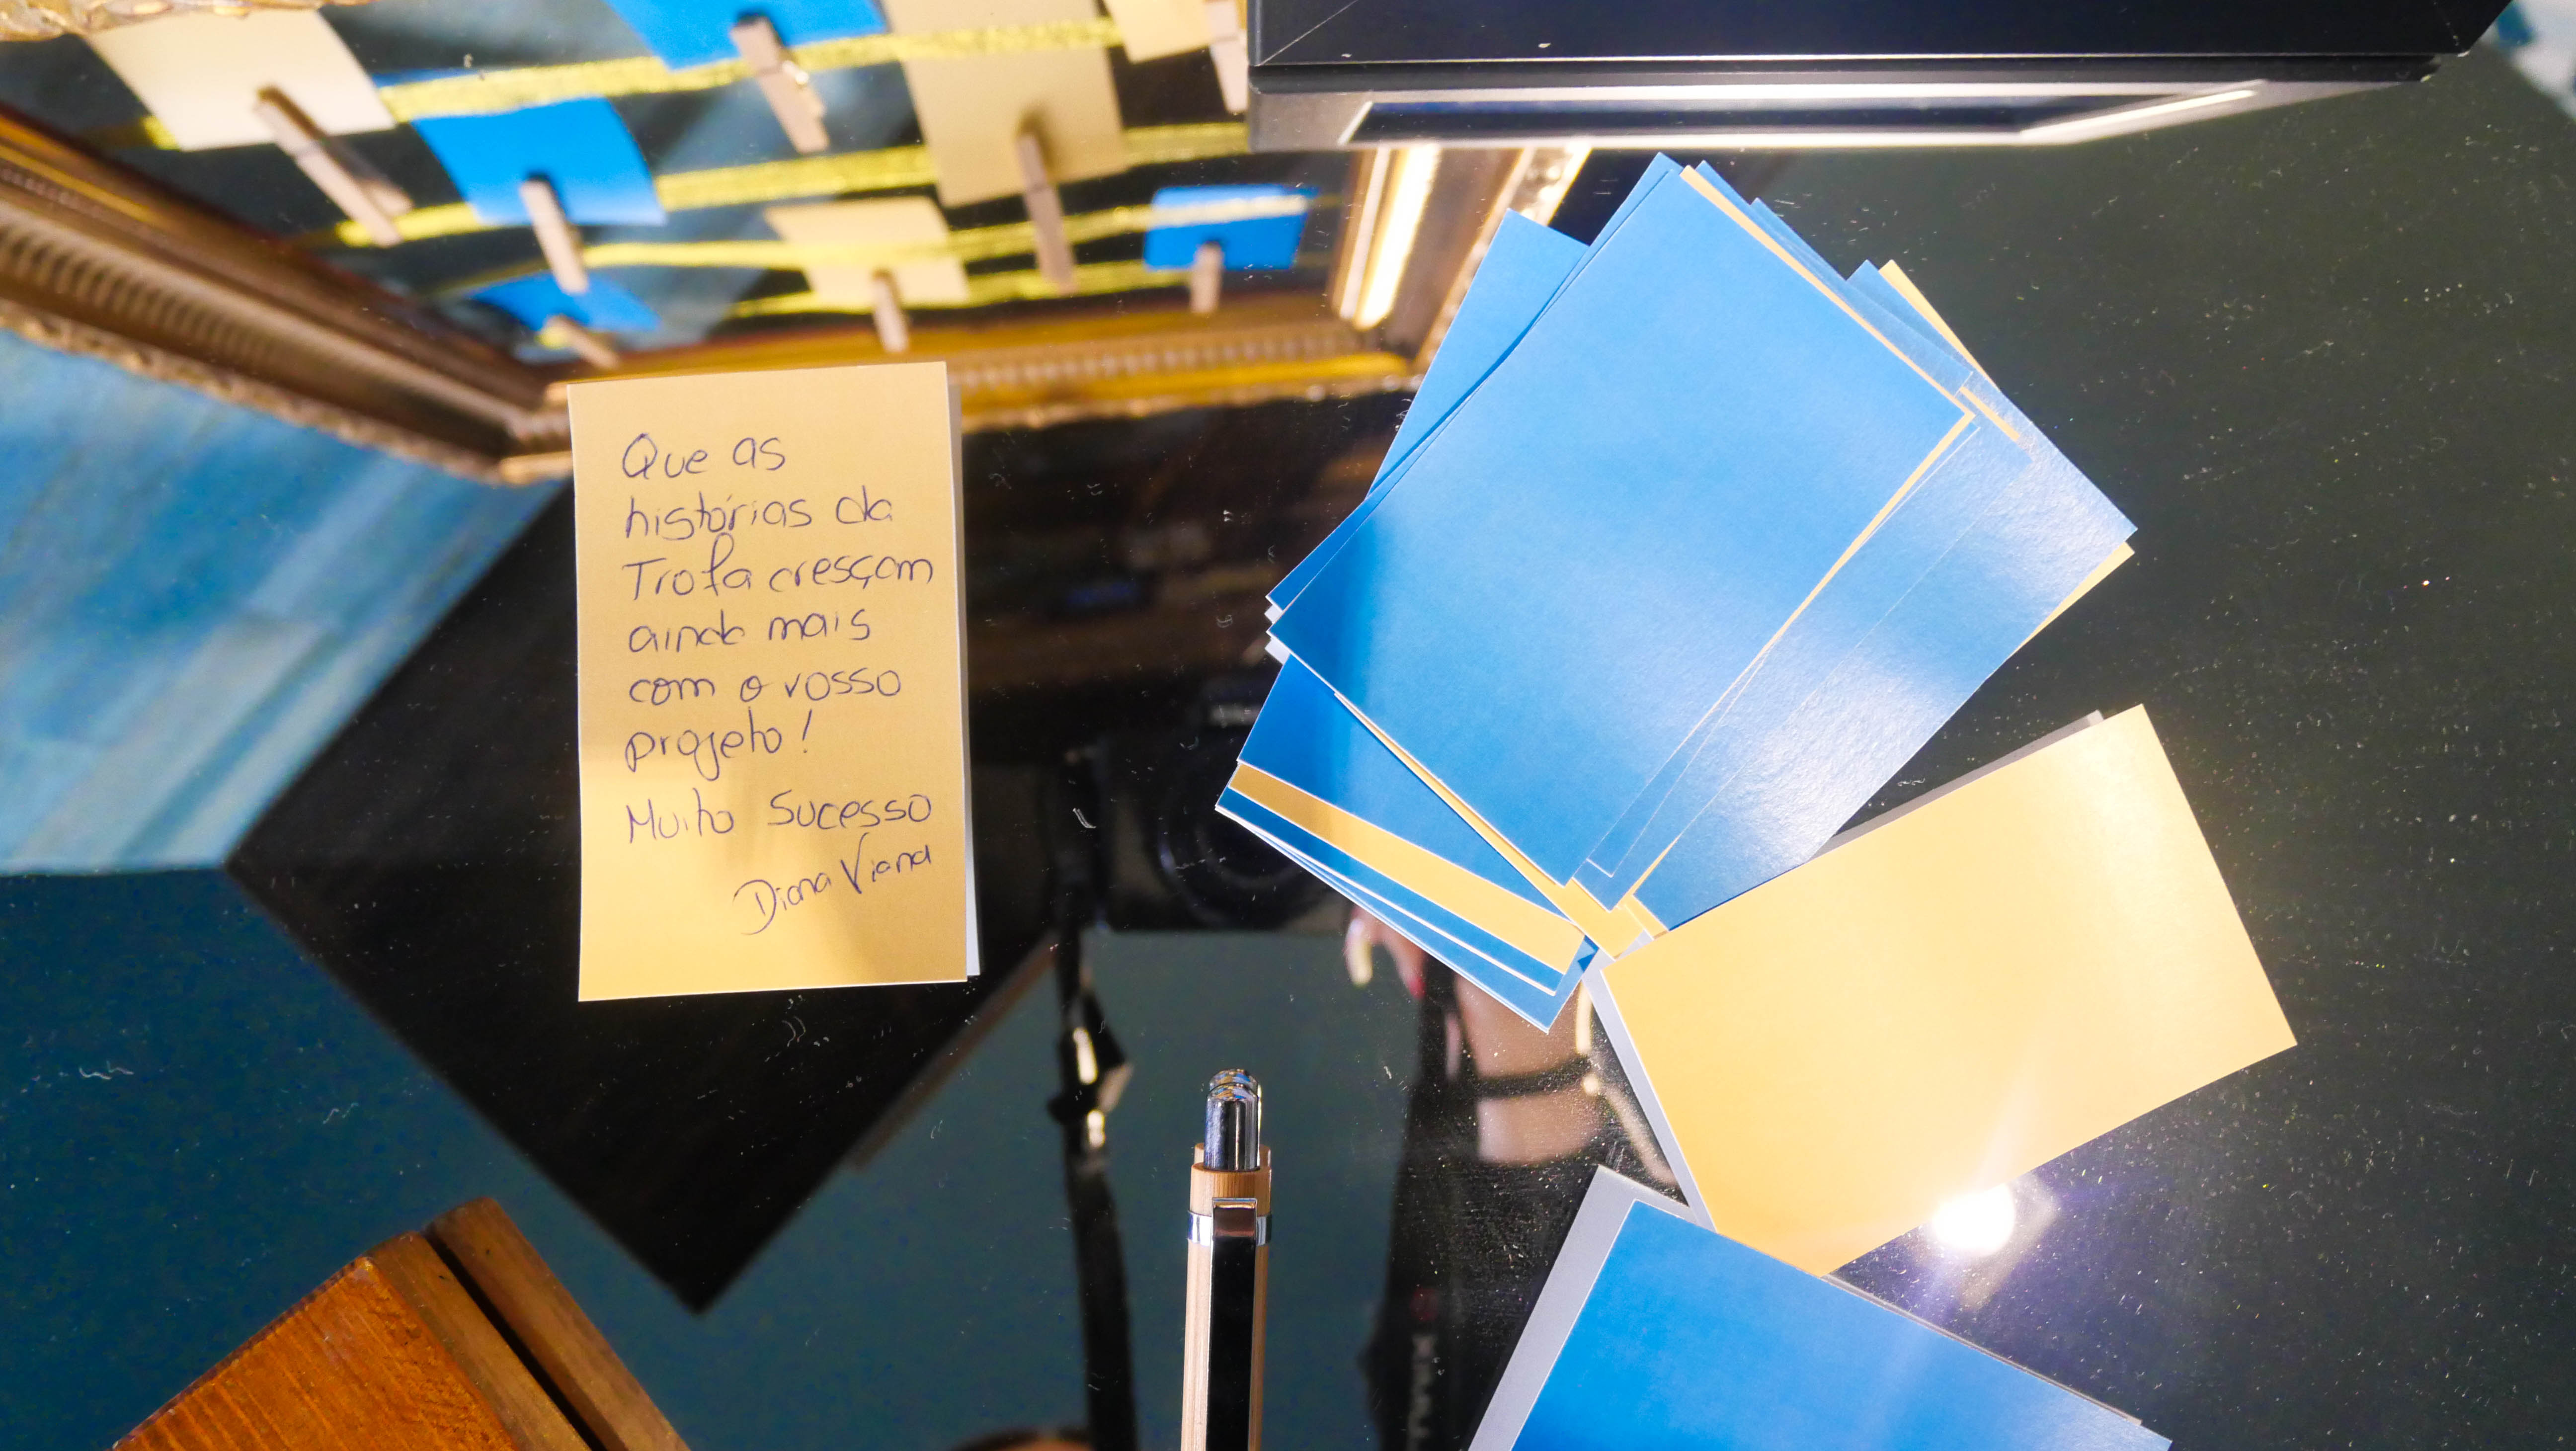 Que as
histórias da
Trofa cresçam
ainda mais
com o vosso
projeto!
Muito Sucesso
Diana Viana